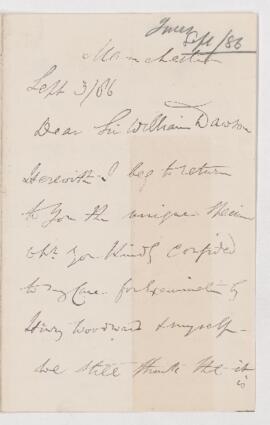 Sept/86
Manchester
Sept 3/86
Dear Sir William Dawson
Herewith I beg to return
to you the unique specimen
wh. you kindly confided
to my care for examination by
Henry Woodward & myself -
we still think tht it
is